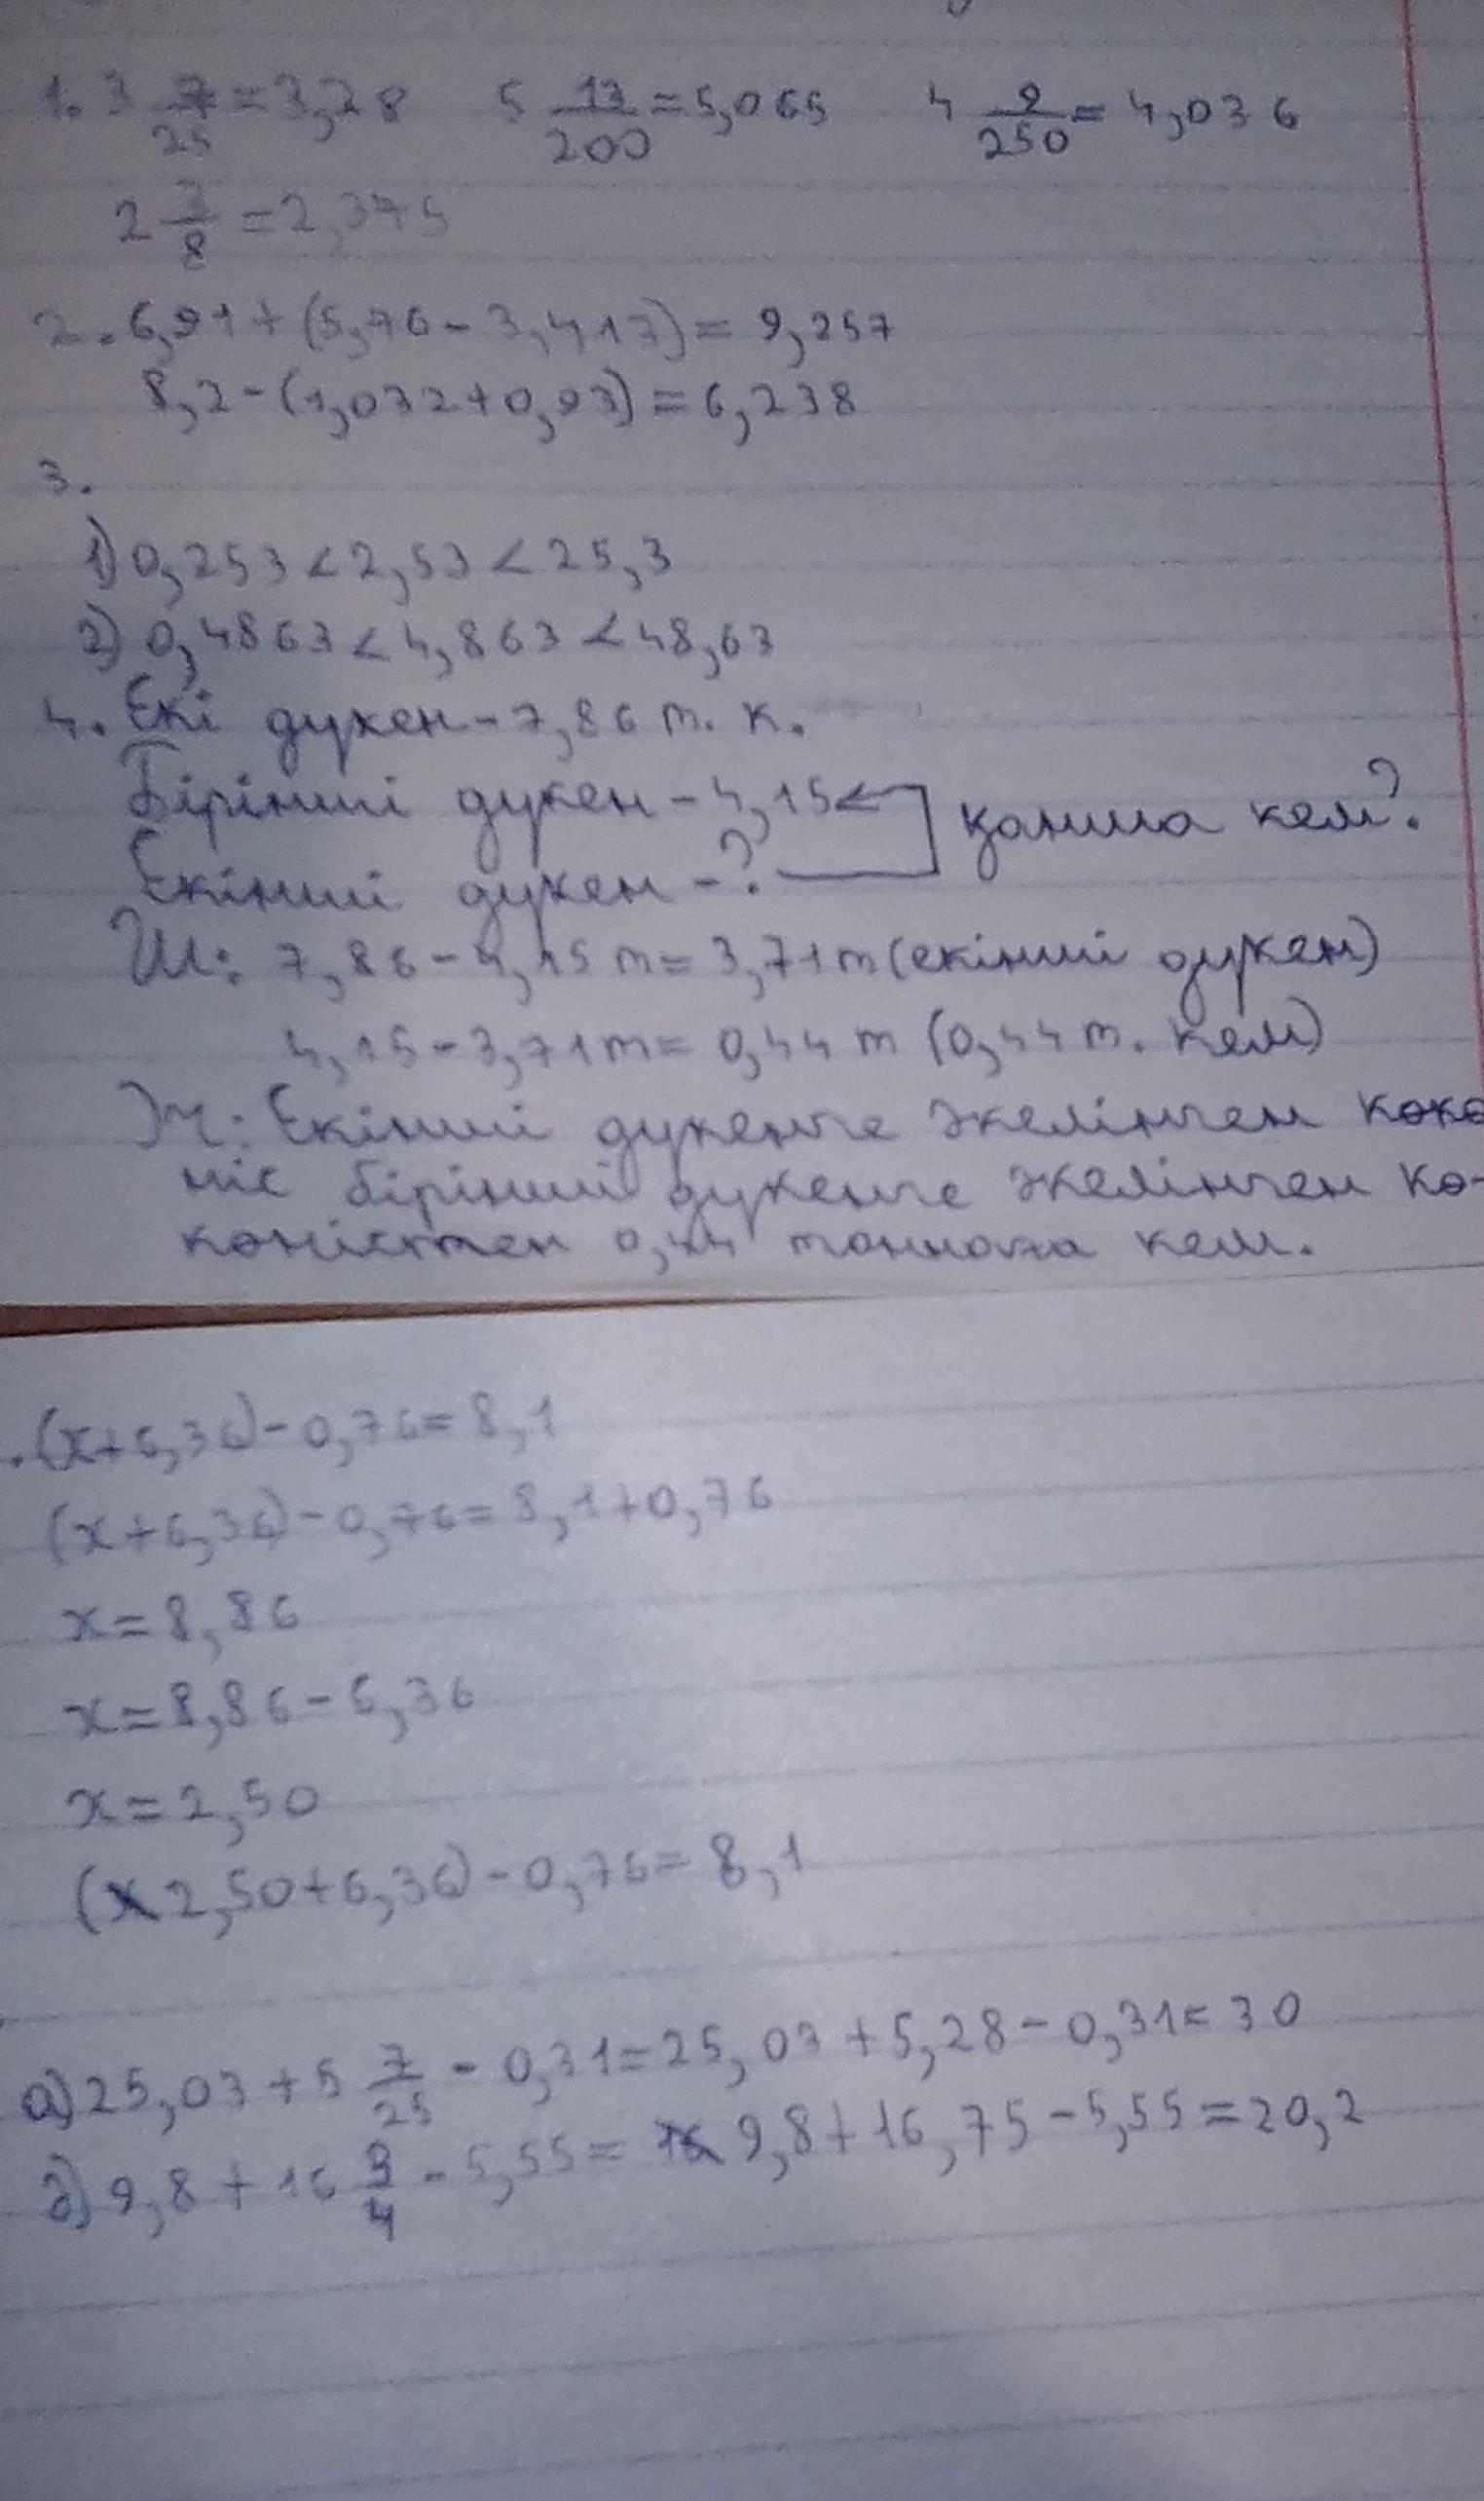 1. 3 7/25 = 3,28 5 13/200 = 5,065 4 9/250 = 4,036
2 3/8 = 2,375
2. 6,91 + (5,76 - 3,413) = 9,257
8,2 - (1,032 + 0,93) = 6,238
3.
1) 0,253 < 2,53 < 25,3
2) 0,4863 < 4,863 < 48,63
4. Екі дүкен - 7,86 т. к.
Бірінші дүкен - 4,15
қанша кем?
Екінші дүкен - ?
Ш: 7,86 - 4,15 т = 3,71 т (екінші дүкен)
4,15 - 3,71 т = 0,44 т (0,44 т. кем)
Ж: Екінші дүкенге әкелінген көкө
ніс бірінші дүкенге әкелінген кө-
көністен 0,44 тоннаға кем.
. (x + 6,36) - 0,76 = 8,1
(x + 6,36) - 0,76 = 8,1 + 0,76
x = 8,86
x = 8,86 - 6,36
x = 2,50
(2,50 + 6,36) - 0,76 = 8,1
а) 25,03 + 5 7/25 - 0,31 = 25,03 + 5,28 - 0,31 = 30
ә) 9,8 + 16 3/4 - 5,55 = 9,8 + 16,75 - 5,55 = 20,2